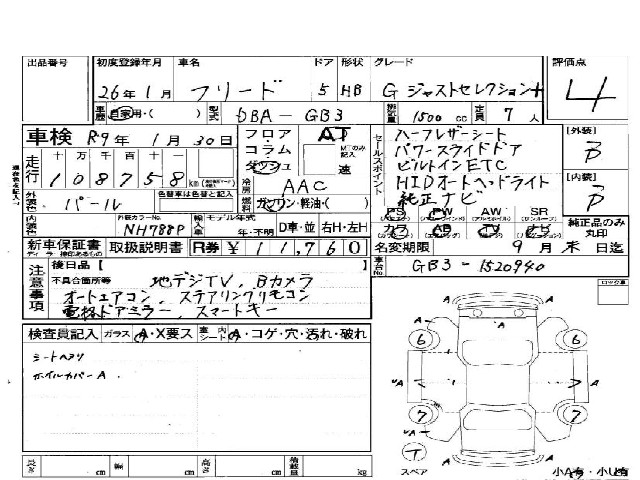 出品番号 初度登録年月 車名 ドア 形状 グレード 評価点
26年1月 フリード 5 HB G ジャストセレクション+ 4
車歴 自家用・( ) 型式 DBA-GB3 排気量 1500 cc 定員 7 人
車検 R9年 1月 30日 フロア コラム ダッシュ AT MTのみ記入 速
セールスポイント ハーフレザーシート
パワースライドドア
ビルトインETC
HIDオートヘッドライト
純正ナビ
【外装】 B
【内装】 B
走行 十 万 千 百 十 一
108758 km
冷房 AAC
外装色 パール 色替車は色替と記入 燃料 ガソリン・軽油・( )
PS PW AW SR
カワ ナビ TV エアB 純正品のみ丸印
内装色 外装カラーNo. NH788P 輸入車 モデル年式 年・不明 D車・並 右H・左H
新車保証書 取扱説明書 R券 ¥11,760 名変期限 9月 末 日迄
車台No. GB3-1520940
注意事項 後日品【 】
不具合箇所等 地デジTV、Bカメラ
オートエアコン、ステアリングリモコン
電格ドアミラー、スマートキー
ロック車
検査員記入 ガラス A・X要ス 室内シート A・コゲ・穴・汚れ・破れ
シートヘタリ
ホイルカバーA
A A
6 6
A A
7 7
A A
T
スペア
長さ cm 幅 cm 高さ cm 積載量 kg
小A有・小U有